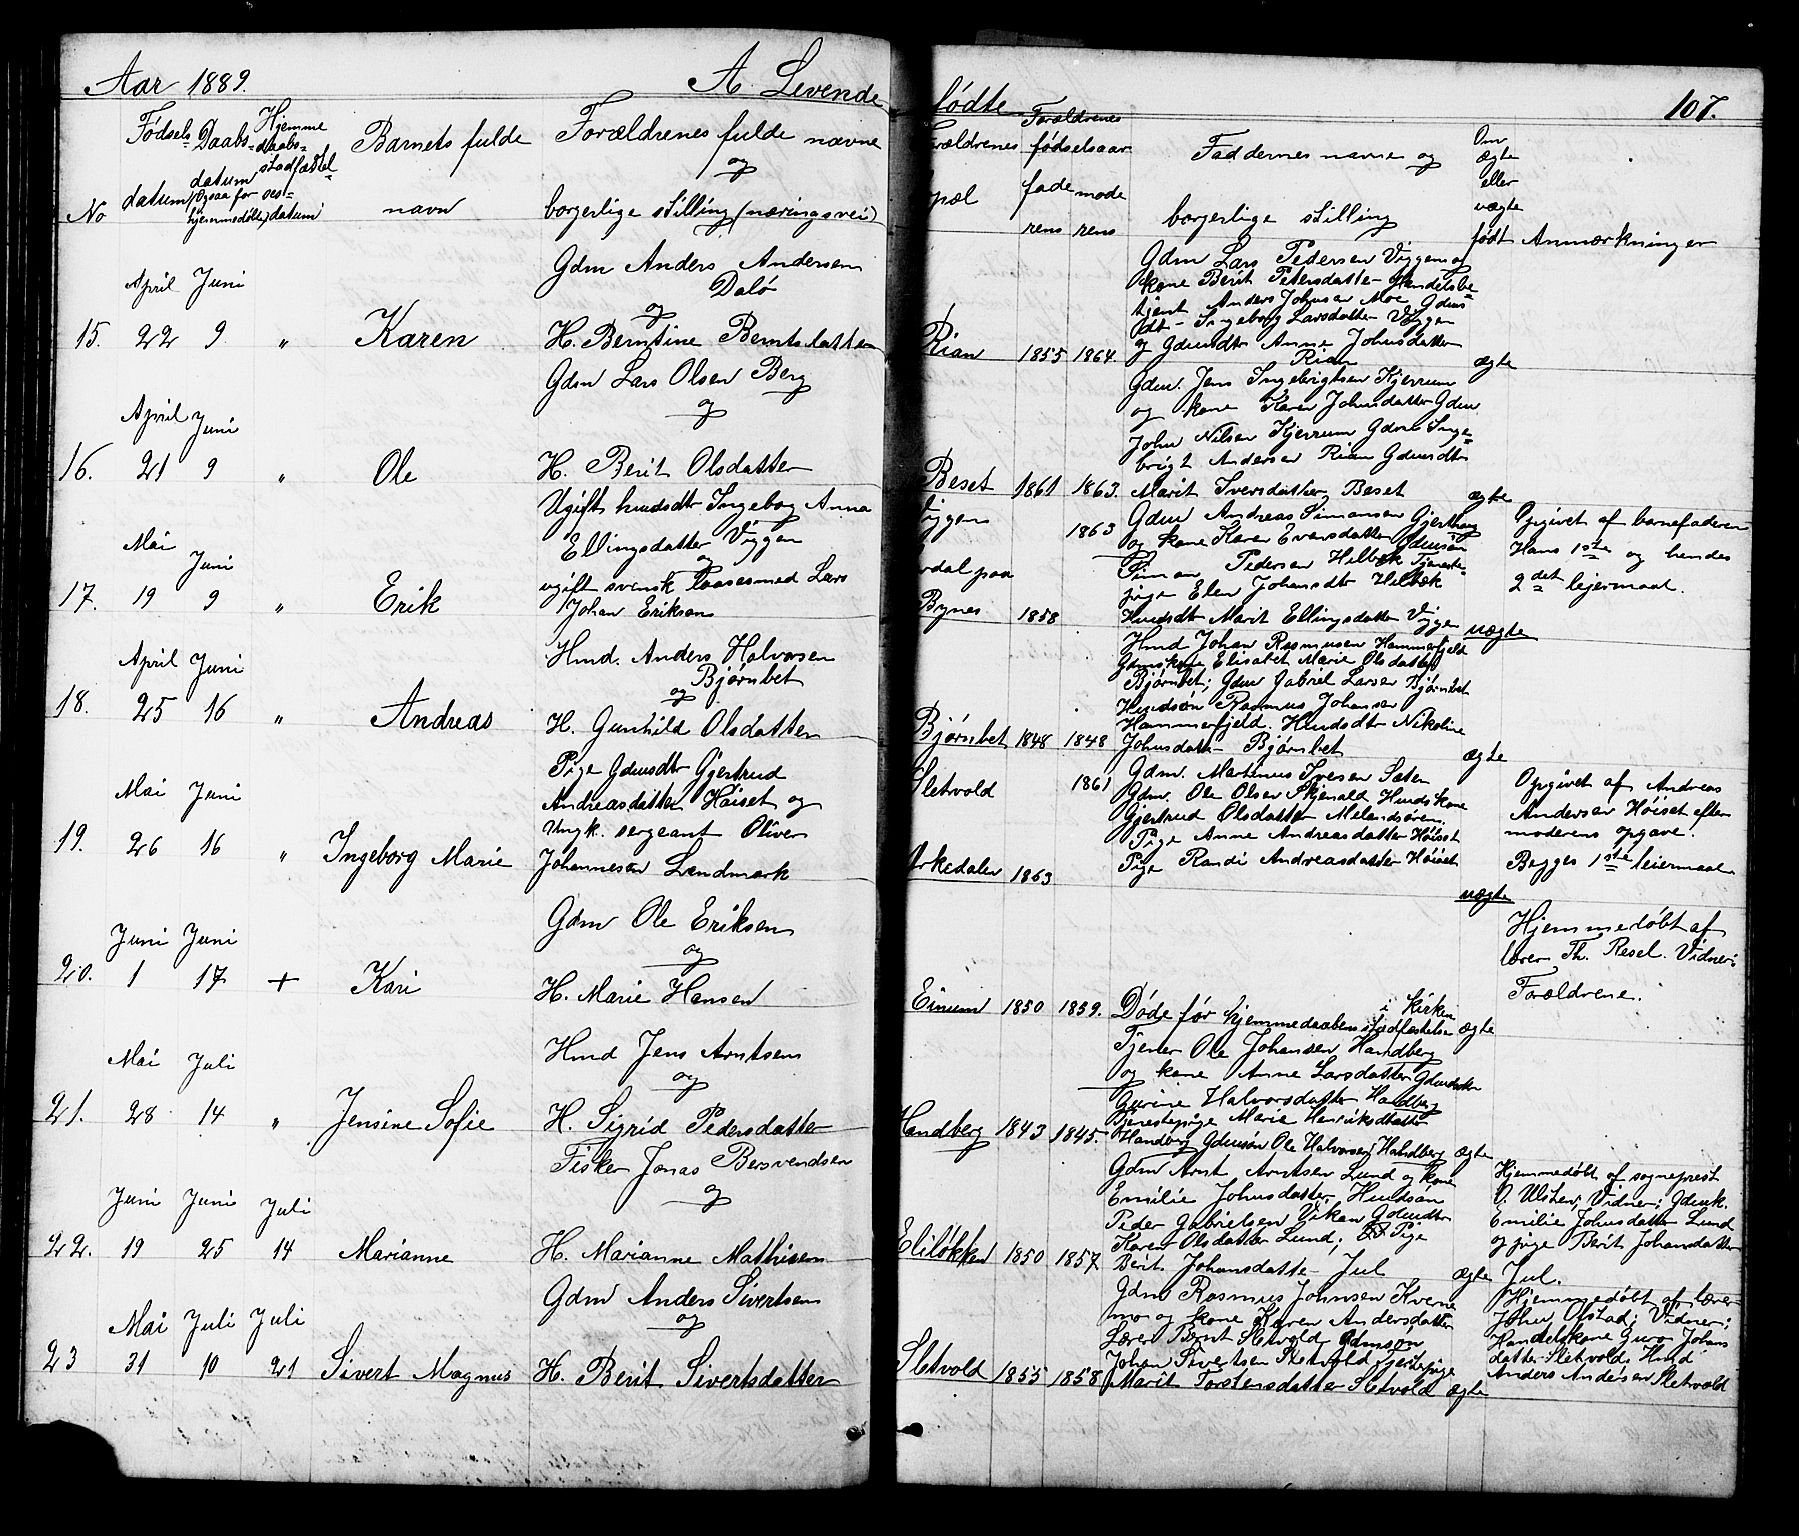 Aar 1889. A. Levende fødte 107.
No
Fødsels datum
Daabs datum (ogsaa for hjemmedøbte)
Hjemme daabs stadfæstel ses datum
Barnets fulde navn
Forældrenes fulde navne
og
borgerlige stilling (næringsvei)
Forældrenes
Forældrenes fødselsaar
faderens moderens
Faddernes navne og
borgerlige stilling
Om ægte eller uægte født
Anmærkninger
April Juni
15. 22 9 " Karen
Gdm Anders Andersen
Dalø
og
H. Berntine Berntsdatter
Rian 1855 1864.
Gdm Lars Pedersen Viggen og
kone Berit Petersdatter Handelsbe=
tjent Anders Johnsen Moe Gdms
dt- Ingeborg Larsdatter Viggen
og Gdmdtr Anne Johnsdatter
Rian
ægte
April Juni
16. 21 9 " Ole
Gdm Lars Olsen Berg
og
H. Berit Olsdatter
Beset 1861 1863.
Gdm. Jens Ingebrigtsen Kjerrum
og kone Karen Johnsdatter Gdm
John Nilsen Kjerrum Gdm Inge=
brigt Andersen Rian Gdmdtr
Marit Iversdatter Beset
ægte
Mai Juni
17. 19 9 " Erik
Ugift hmdsdtr Ingeborg Anna
Ellingsdatter Viggen
og
ugift svensk laasesmed Lars
Johan Eriksen
Viggen 1863
dal paa
Bynes 1858
Gdm Andreas Simonsen Gjerthaug
og kone Karen Eversdatter Gdmsøn
Simon Pedersen Hilbæk Tjeneste=
pige Elen Johansdtr Hilbæk
Hmdsdtr Marit Ellingsdatter Vigge
uægte
Opgivet af barnefaderen
Hans 1ste og hendes
2det lejermaal.
April Juni
18. 25 16 " Andreas
Hmd. Anders Halvorsen
Bjørnbet
og
H. Gunhild Olsdatter
Bjørnbet 1848 1848
Hmd Johan Rasmusen Hammerfjeld
Gdmskone Elisabet Marie Olsdatter
Bjørnbet; Gdm Gabriel Larsen Bjørnbet
Hmdsøn Rasmus Johansen
Hammerfjeld. Hmdsdtr Nikoline
Johnsdatter Bjørnbet
ægte
Mai Juni
19. 26 16 " Ingeborg Marie
Pige Gdmsdtr Gjertrud
Andreasdatter Høiset og
Ungk. sergeant Oliver
Johannesen Landmark
Sletvold 1861
Orkedalen 1863
Gdm. Martinus Iversen Sæter
Gdm. Ole Olsen Skjenald Hmdskone
Gjertrud Olsdatter Melandsøren.
Pige Anne Andreasdatter Høiset
Pige Randi Andreasdatter Høiset
uægte
Opgivet af Andreas
Andersen Høiset efter
moderens opgave.
Begges 1ste leiermaal
Juni Juni
20. 1 17 + Kari
Gdm Ole Eriksen
og
H. Marie Hansen
Einum 1850 1859.
Døde før hjemmedaabens stadfæstelse
i kirken
ægte
Hjemmedøbt af
lærer Th. Resel. Vidner:
Forældrene.
Mai Juli
21. 28 14 " Jensine Sofie
Hmd Jens Arntsen
og
H. Sigrid Pedersdatter
Handberg 1843 1845.
Tjener Ole Johansen Handberg
og kone Anne Larsdatter Gdmdatter
Gurine Halvorsdatter Handberg
Tjenestepige Marie Henriksdatter
Handberg Gdmsøn Ole Halvorsen Handberg
ægte
Juni Juni Juli
22. 19 25 14 Marianne
Fisker Jonas Bersvendsen
og
H. Marianne Mathisen
Elisløkken 1850 1857
Gdm Arnt Arntsen Lund og kone
Emilie Johnsdatter, Hmdsøn
Peder Gabrielsen Viken Gdmdtr
Karen Olsdatter Lund; Pige
Berit Johansdatter Jul
ægte
Hjemmedøbt af sogneprest
O. Ulsten; Vidner: Gdmk.
Emilie Johnsdatter Lund
og pige Berit Johansdatter
Jul.
Mai Juli Juli
23 31 10 21 Sivert Magnus
Gdm Anders Sivertsen
og
H. Berit Sivertsdatter
Sletvold 1855 1858
Gdm Rasmus Johnsen Kverne
mo og kone Karen Andersdatter
Lærer Bernt Sletvold Gdmsøn
Johan Sivertsen Sletvold Tjenstepige
Marit Torstensdatter Sletvold
ægte
Hjemmedøbt af lærer
John Olstad; Vidner:
Handelskone Guro Johans
datter Sletvold; Hmd
Anders Andersen Sletvold